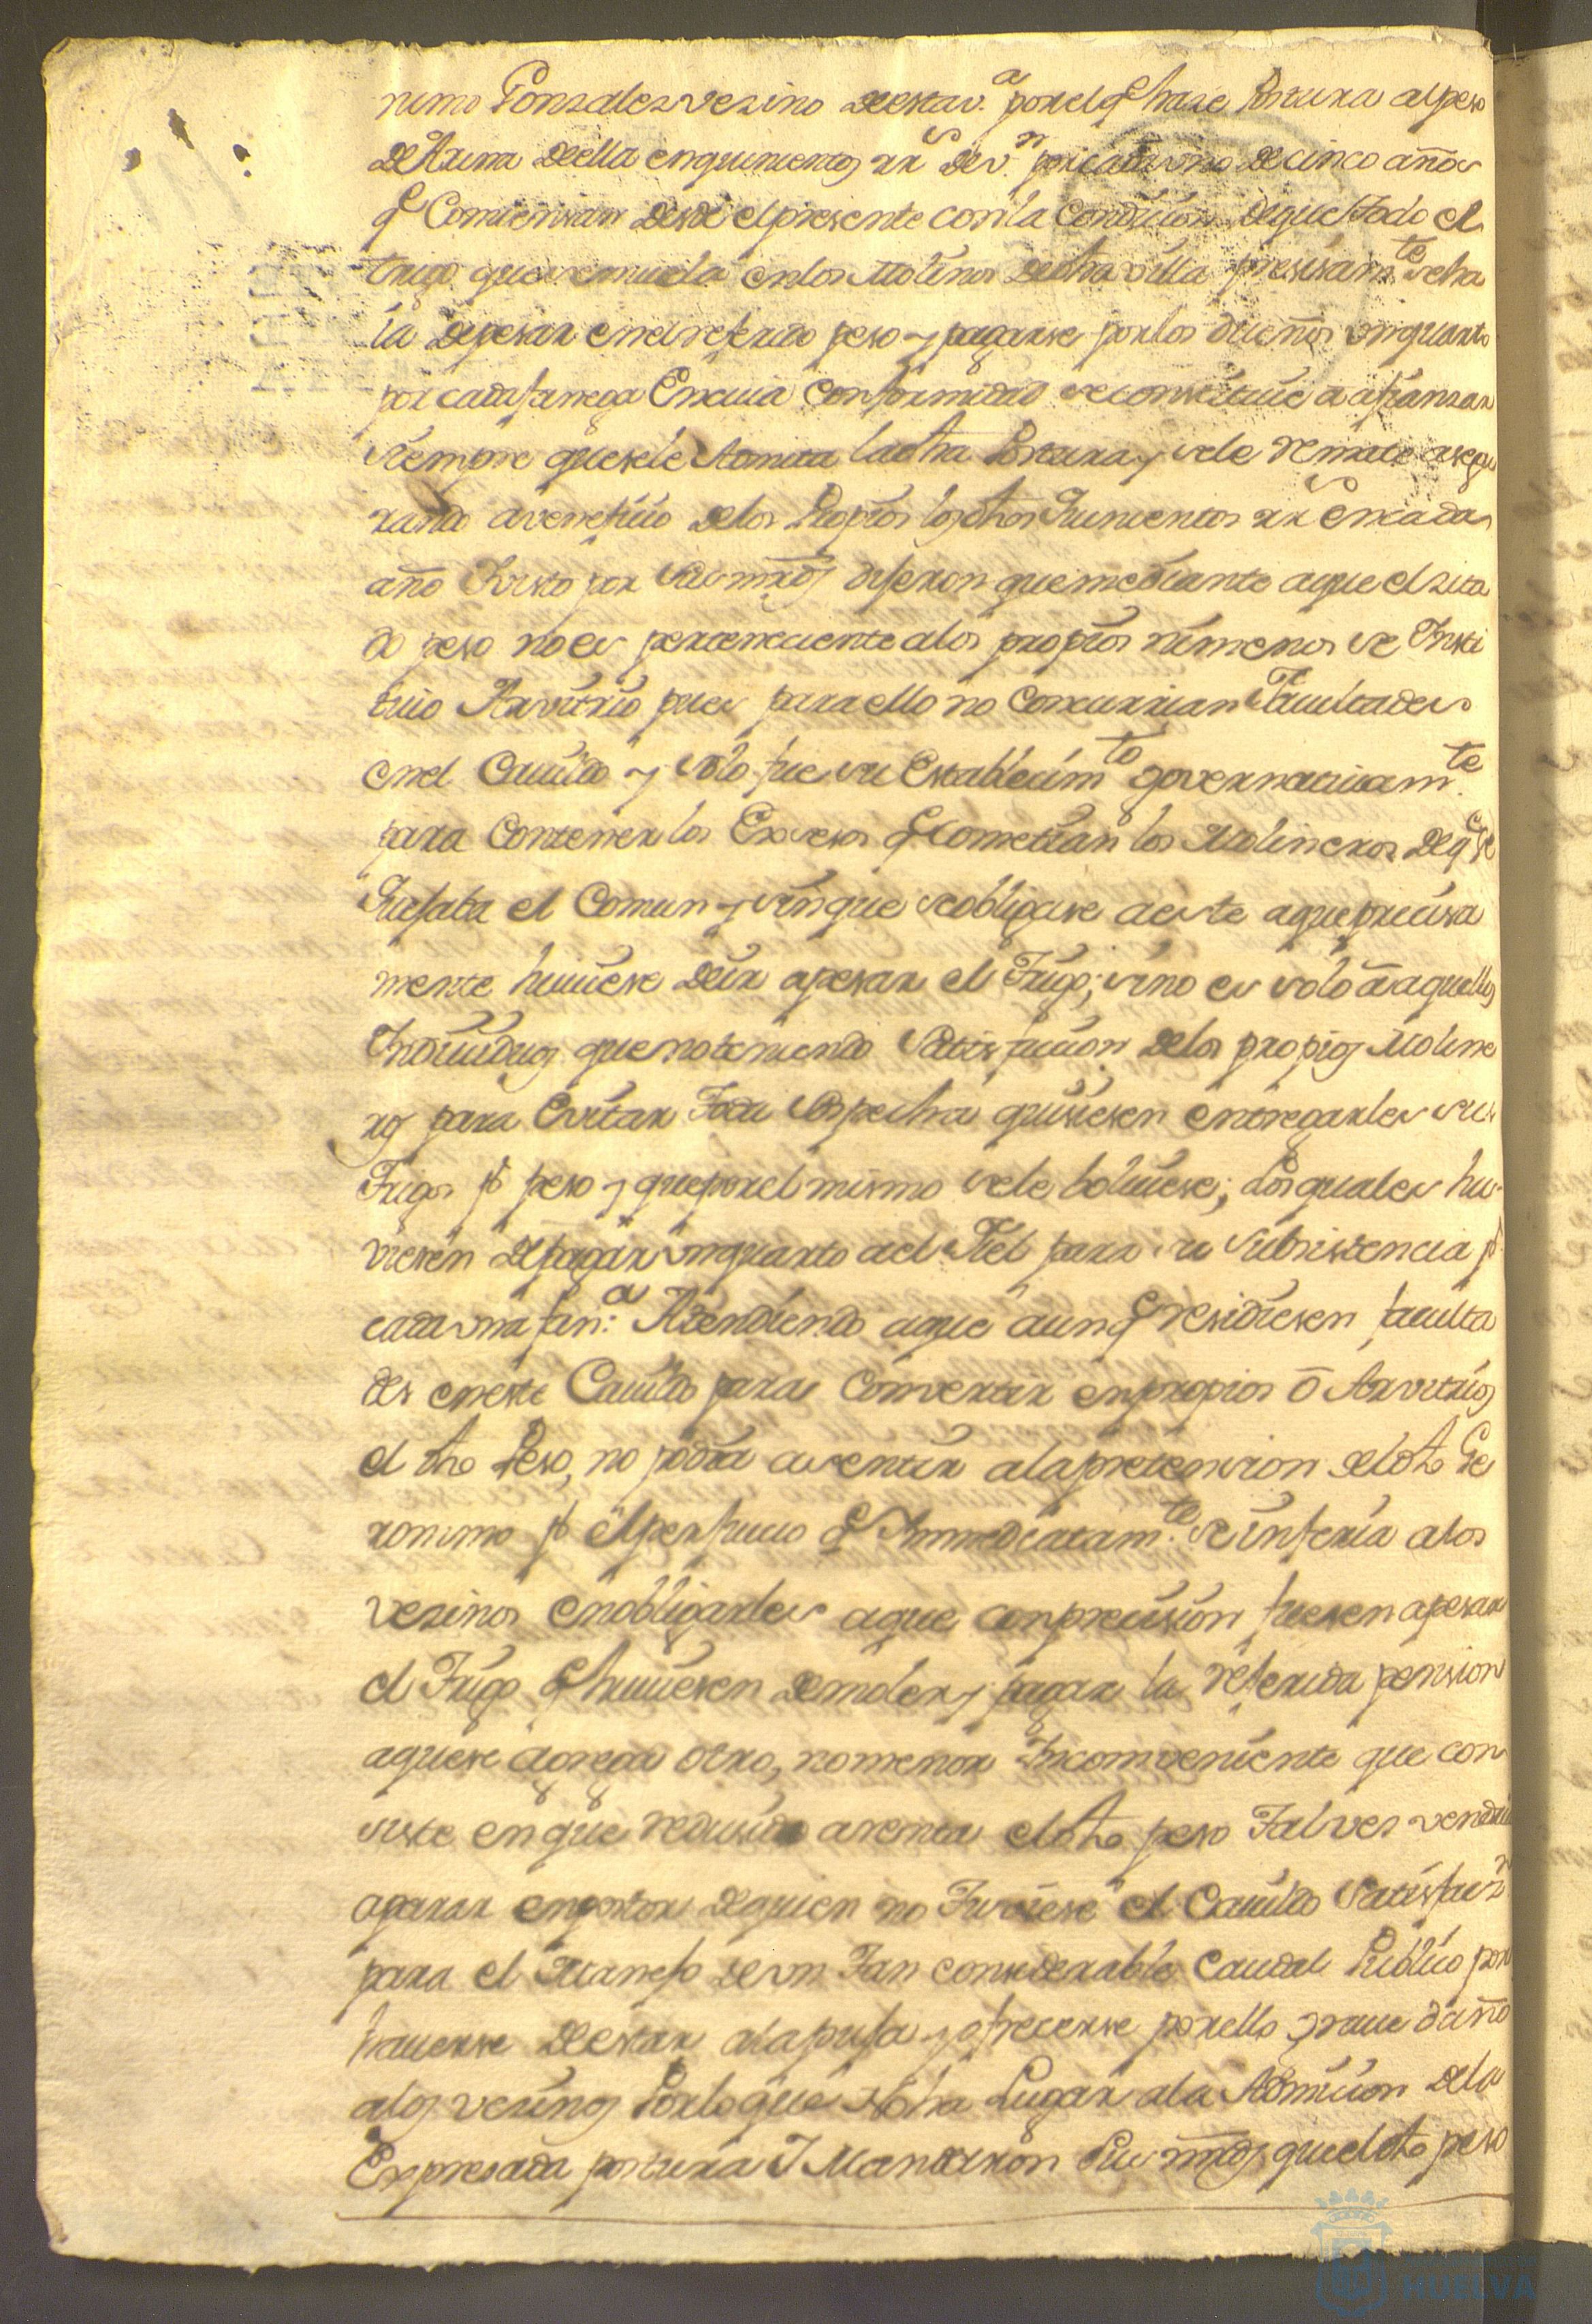 nimo Gonzales vezino de esta v.ª por el q.e haze Postura al peso
de Arina de ella en quinientos rr.s de v.n por cada uno de cinco años
q.e Comiensan desde el presente con la Condision de que todo el
trigo que se muela en los Molinos de dha villa presisam.te se ha
ia de pesar en el referido peso y pagarse por los dueños un quarto
por cada fanega En cuia Conformidad se constitue a afianzar
siempre que se le Admita la dha Postura y se le Remate asegu
rando a veneficio de los Propios los dhos Quinientos rr.s En cada
año Y visto por sus mrds dijeron que mediante a que el zita
do peso no es perteneciente a los propios ni menos se Insti
tuio Arvitrio pues para ello no Concurrian Facultades
en el Cauildo y solo fue su Establecim.to governativam.te
para Contener los Exsesos q.e Cometian los Molineros de q.e se
Quejaba el Comun y sin que se obligase a este a que precisa
mente huuiese de ir a pesar el Trigo; sino es solo a aquellos
Indiuiduos que no teniendo Satisfaccion de los propios Moline
ros para Evitar Toda sospecha quisiesen entregarles sus
Trigos p.r peso y que por el mismo se le boluiese; Los quales hu
viesen de pagar un quarto a el Fiel para su Subsistencia p.r
cada una fan.ª Atendiendo a que aunq.e residiesen faculta
des en este Cauildo para Convertir en propios ó Arvitrios
el dho Peso, no podia asentir a la pretension del dho Ge
ronimo p.r el perjuicio q.e Immediatam.te se inferia a los
vezinos en obligarles a que con precision fuesen a pesar
el Trigo q.e huuiesen de moler y pagar la referida pension
a que se agrega otro, no menor Incombeniente que con
siste en que reducido a renta el dho peso Tal ves vendria
a parar en postor de quien no Tuviese el Cauildo Satisfaz.n
para el Manejo de un Tan considerable Caudal Publico por
hauerse de estar a la puja y ofrecerse por ello graue daño
a los vezinos Por lo que No ha Lugar a la Admicion de la
Expresada postura Y Mandaron Sus mrds que el dho peso
HUELVA